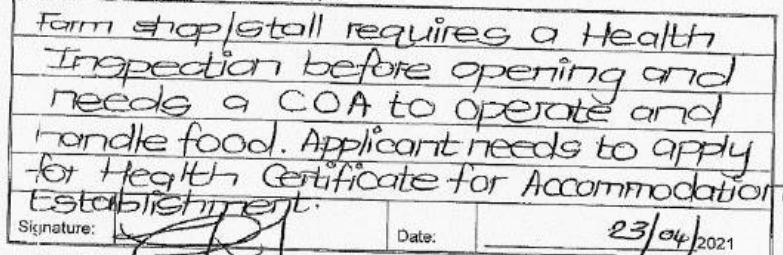 Farm shop/stall requires a Health
Inspection before opening and
needs a COA to operate and
handle food. Applicant needs to apply
for Health Certificate for Accommodation
Establishment.
Signature: Date: 23/04/2021